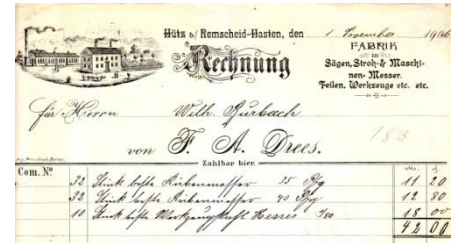 Hüts b/ Remscheid-Hasten, den 1 November 1906
Rechnung
FABRIK
in
Sägen, Stroh- & Maschi-
nen- Messer.
Feilen, Werkzeuge etc. etc.
für Herrn Wilh. Burbach
183
von F. A. Drees.
Zahlbar hier.
Com. №
32 Stück beste Rübenmesser 35 Pfg 11 20
32 Stück beste Rübenmesser 40 Pfg 12 80
10 Stück beste 1/80 18 00
42 00